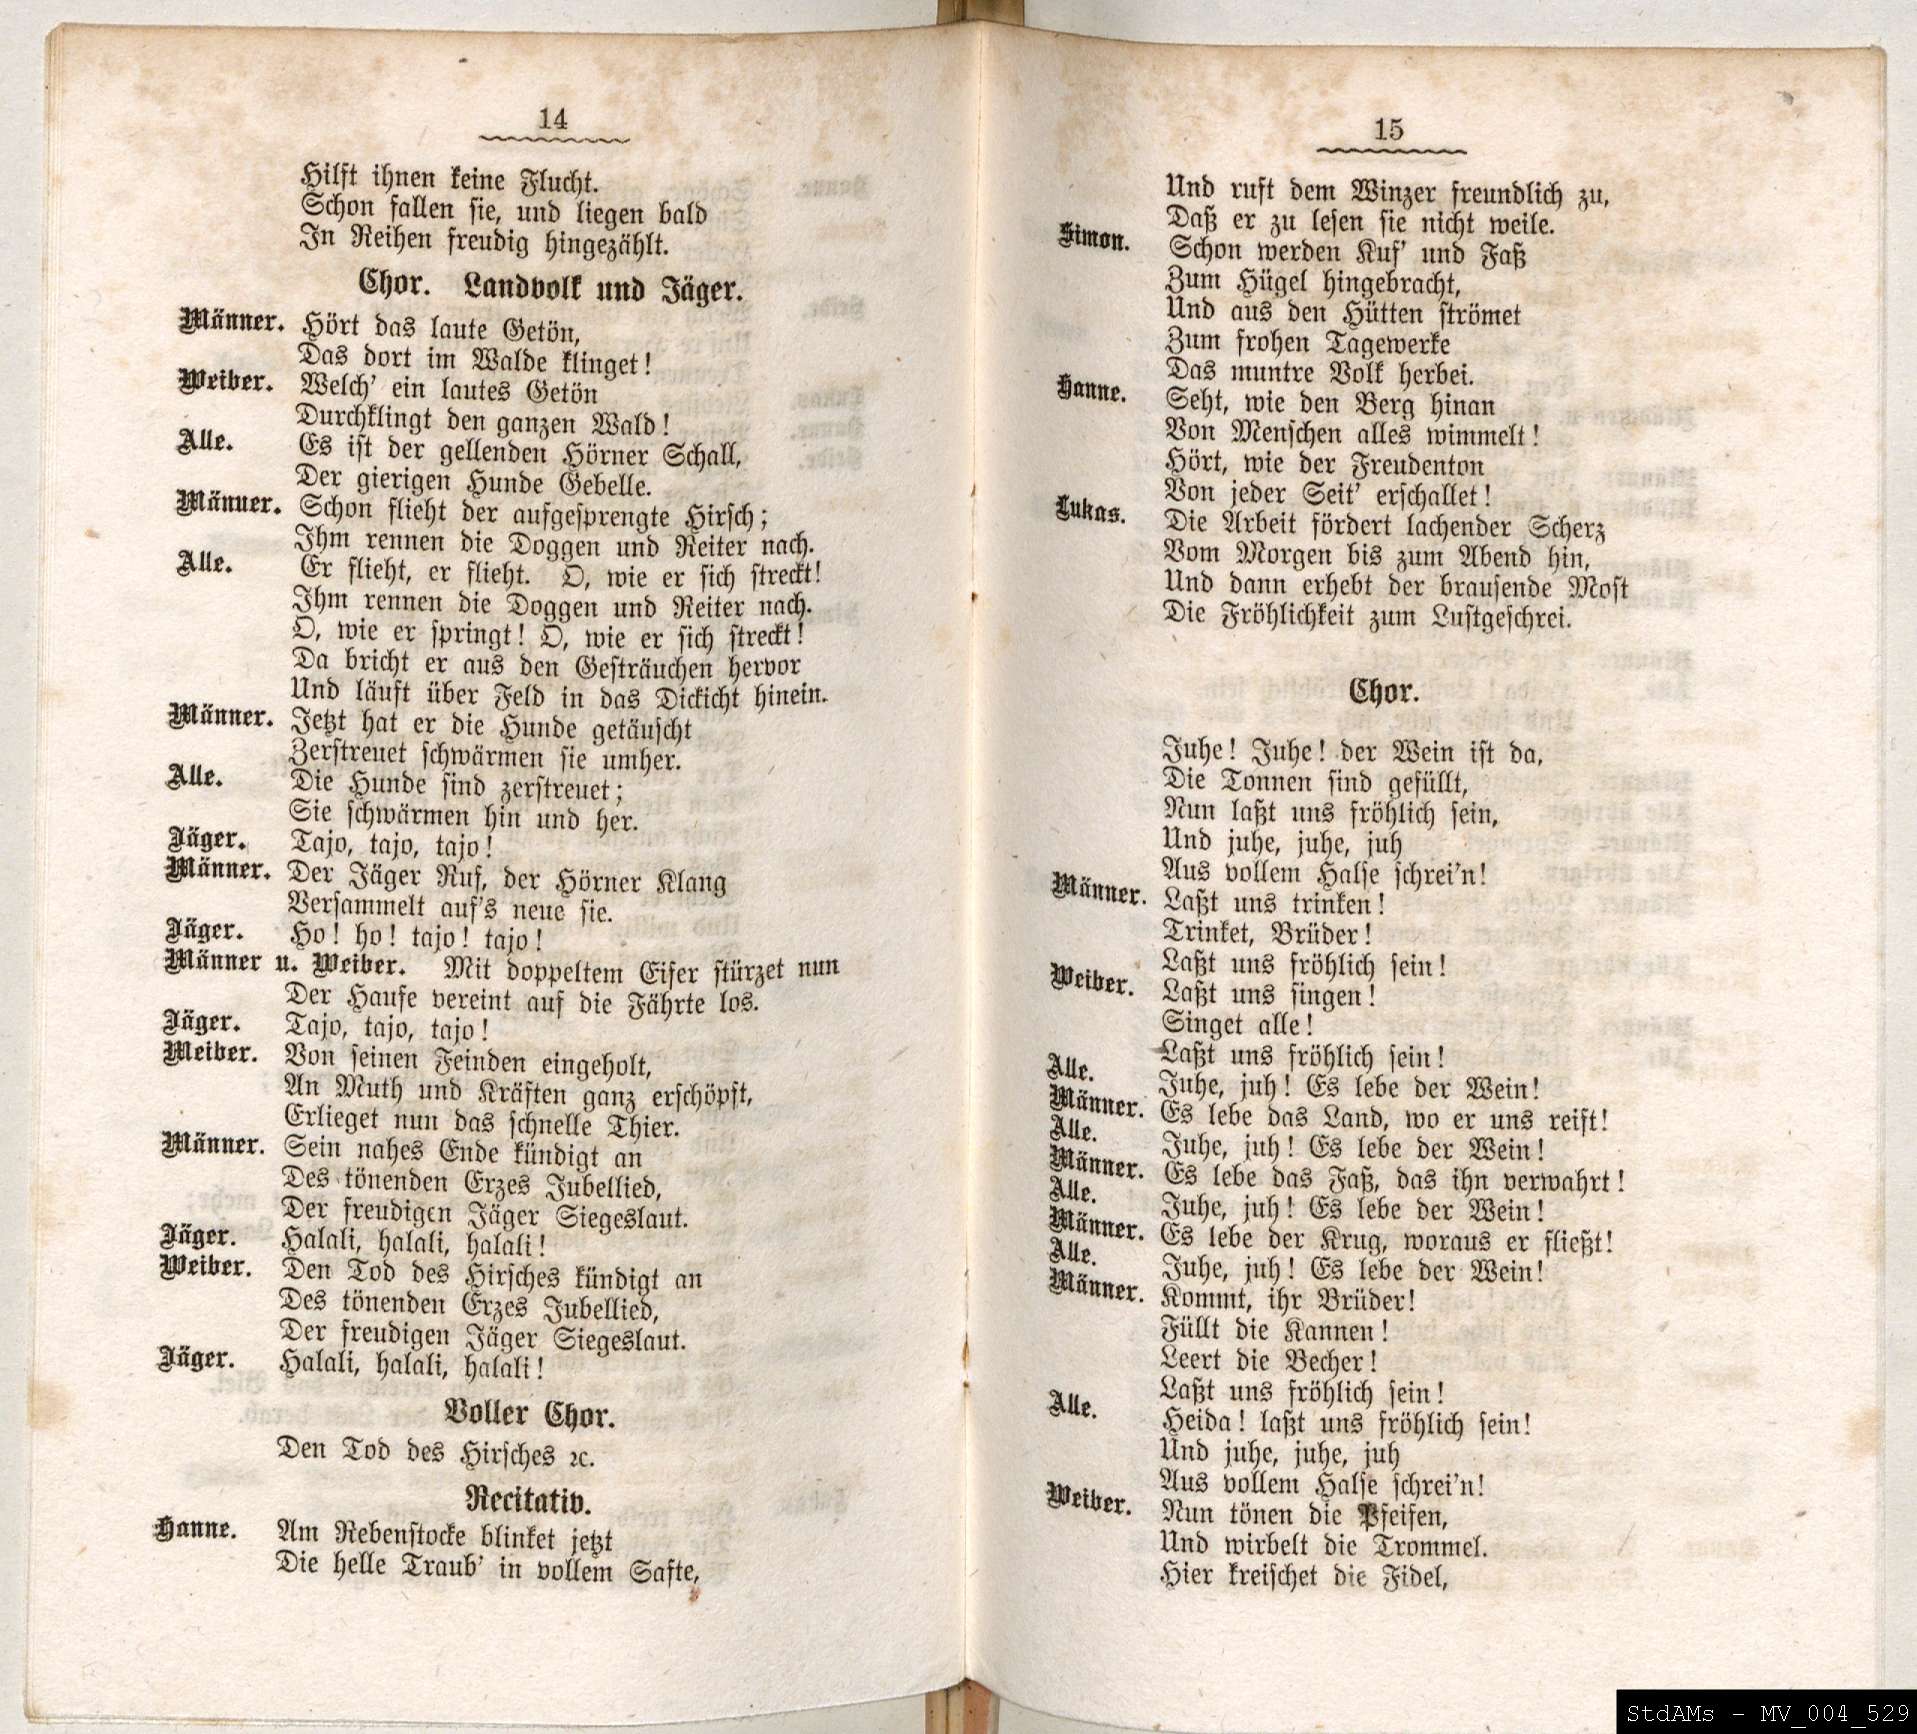 14
Hilft ihnen keine Flucht.
Schon fallen sie, und liegen bald
In Reihen freudig hingezählt.
Chor. Landvolk und Jäger.
Männer. Hört das laute Getön,
Das dort im Walde klinget!
Weiber. Welch' ein lautes Getön
Durchklingt den ganzen Wald!
Alle. Es ist der gellenden Hörner Schall,
Der gierigen Hunde Gebelle.
Männer. Schon flieht der aufgesprengte Hirsch;
Ihm rennen die Doggen und Reiter nach.
Alle. Er flieht, er flieht. O, wie er sich streckt!
Ihm rennen die Doggen und Reiter nach.
O, wie er springt! O, wie er sich streckt!
Da bricht er aus den Gesträuchen hervor
Und läuft über Feld in das Dickicht hinein.
Männer. Jetzt hat er die Hunde getäuscht
Zerstreuet schwärmen sie umher.
Alle. Die Hunde sind zerstreuet;
Sie schwärmen hin und her.
Jäger. Tajo, tajo, tajo!
Männer. Der Jäger Ruf, der Hörner Klang
Versammelt auf's neue sie.
Jäger. Ho! ho! tajo! tajo!
Männer u. Weiber. Mit doppeltem Eifer stürzet nun
Der Haufe vereint auf die Fährte los.
Jäger. Tajo, tajo, tajo!
Weiber. Von seinen Feinden eingeholt,
An Muth und Kräften ganz erschöpft,
Erlieget nun das schnelle Thier.
Männer. Sein nahes Ende kündigt an
Des tönenden Erzes Jubellied,
Der freudigen Jäger Siegeslaut.
Jäger. Halali, halali, halali!
Weiber. Den Tod des Hirsches kündigt an
Des tönenden Erzes Jubellied,
Der freudigen Jäger Siegeslaut.
Jäger. Halali, halali, halali!
Voller Chor.
Den Tod des Hirsches ꝛc.
Recitativ.
Hanne. Am Rebenstocke blinket jetzt
Die helle Traub' in vollem Safte,
15
Und ruft dem Winzer freundlich zu,
Daß er zu lesen sie nicht weile.
Simon. Schon werden Kuf' und Faß
Zum Hügel hingebracht,
Und aus den Hütten strömet
Zum frohen Tagewerke
Das muntre Volk herbei.
Hanne. Seht, wie den Berg hinan
Von Menschen alles wimmelt!
Hört, wie der Freudenton
Von jeder Seit' erschallet!
Lukas. Die Arbeit fördert lachender Scherz
Vom Morgen bis zum Abend hin,
Und dann erhebt der brausende Most
Die Fröhlichkeit zum Lustgeschrei.
Chor.
Juhe! Juhe! der Wein ist da,
Die Tonnen sind gefüllt,
Nun laßt uns fröhlich sein,
Und juhe, juhe, juh
Aus vollem Halse schrei'n!
Männer. Laßt uns trinken!
Trinket, Brüder!
Laßt uns fröhlich sein!
Weiber. Laßt uns singen!
Singet alle!
Laßt uns fröhlich sein!
Alle. Juhe, juh! Es lebe der Wein!
Männer. Es lebe das Land, wo er uns reift!
Alle. Juhe, juh! Es lebe der Wein!
Männer. Es lebe das Faß, das ihn verwahrt!
Alle. Juhe, juh! Es lebe der Wein!
Männer. Es lebe der Krug, woraus er fließt!
Alle. Juhe, juh! Es lebe der Wein!
Männer. Kommt, ihr Brüder!
Füllt die Kannen!
Leert die Becher!
Laßt uns fröhlich sein!
Alle. Heida! laßt uns fröhlich sein!
Und juhe, juhe, juh
Aus vollem Halse schrei'n!
Weiber. Nun tönen die Pfeifen,
Und wirbelt die Trommel.
Hier kreischet die Fidel,
StdAMs - MV_004_529